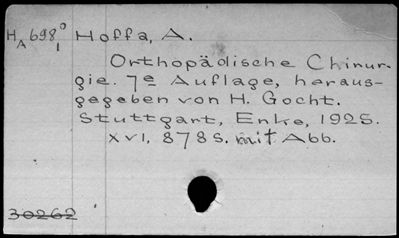 HA 698° Hoffa, A.
1
Orthopädische Chirur-
gie. 7e Auflage, heraus-
gegeben von H. Gocht.
Stuttgart, Enke, 1925.
XVI, 878 S. mit Abb.
30262